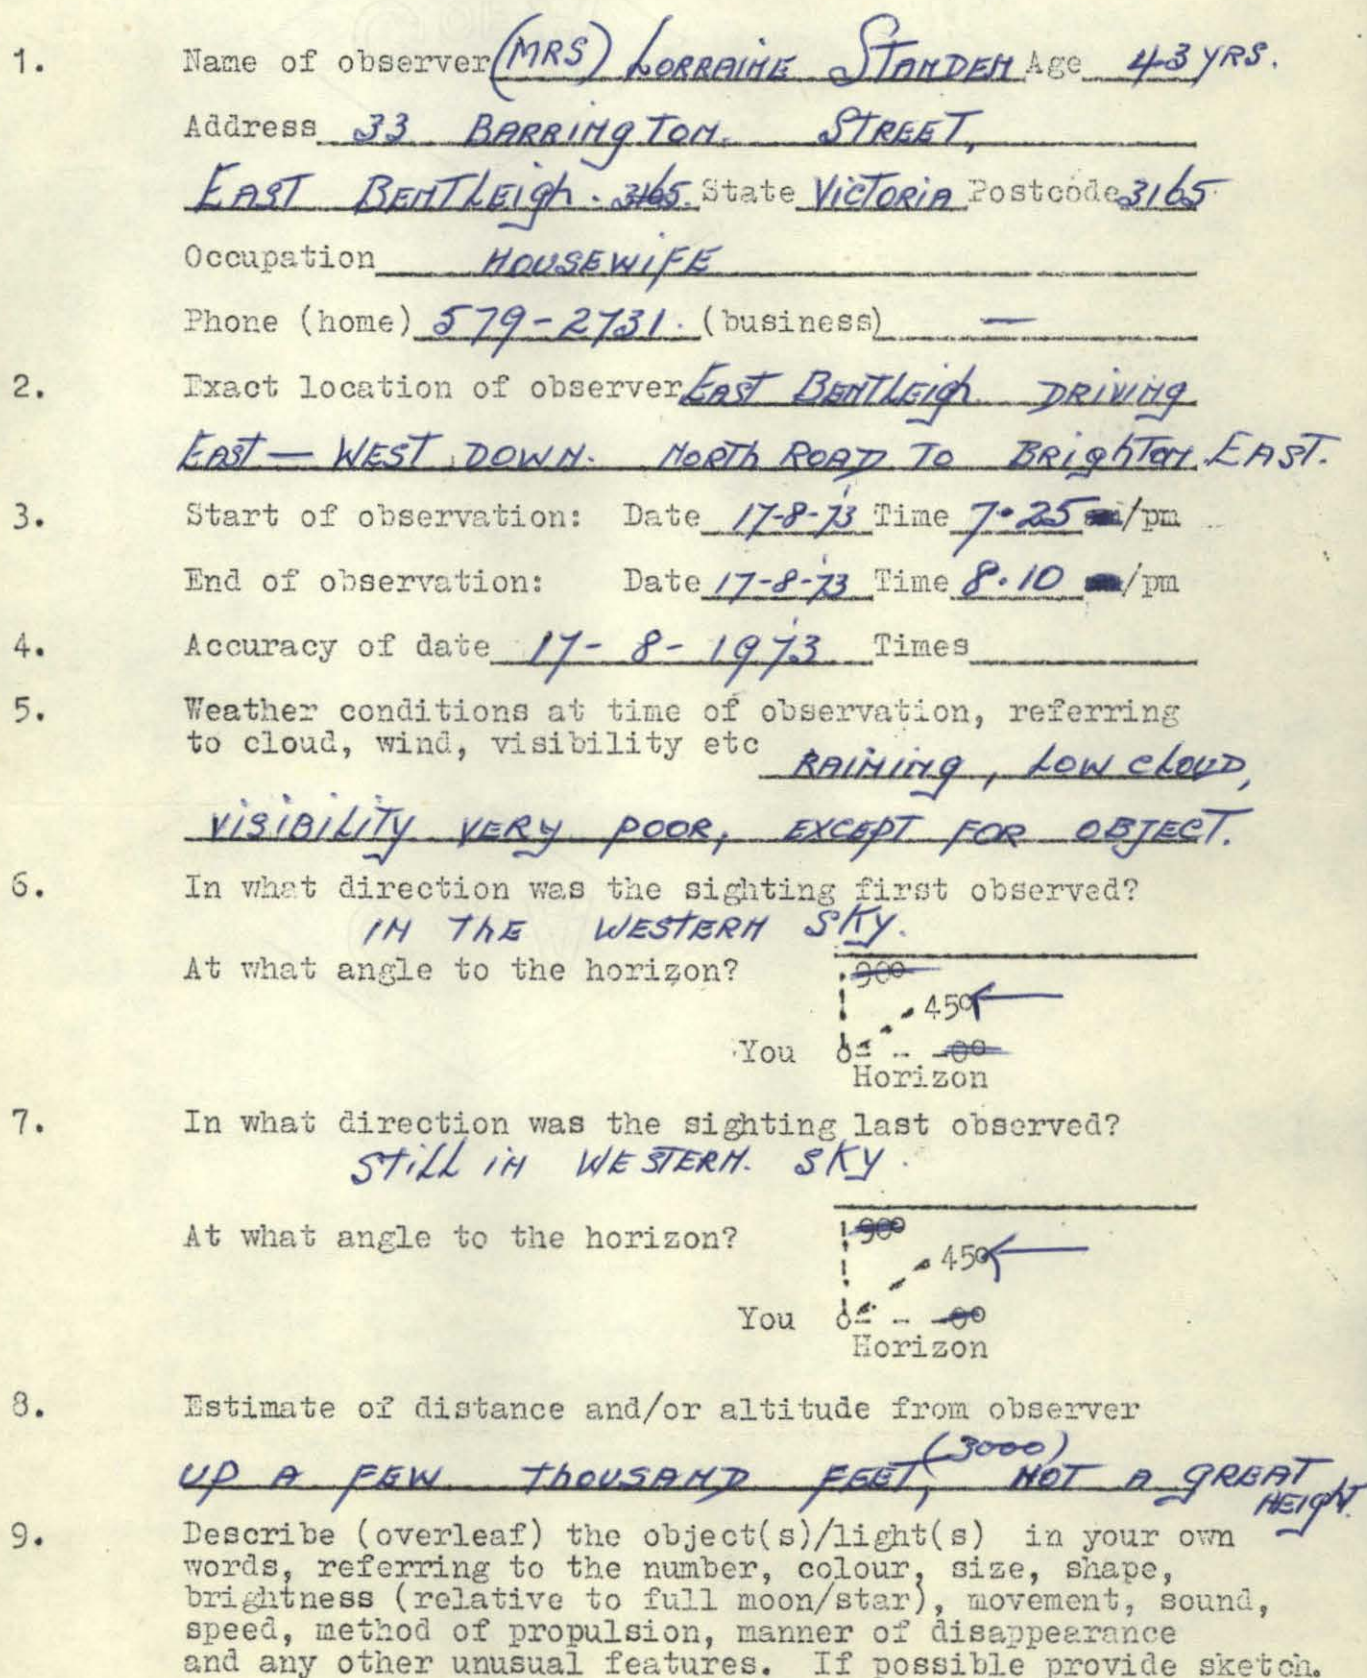 1. Name of observer (MRS) LORRAINE STANDEN Age 43 YRS.
Address 33 BARRINGTON. STREET,
EAST BENTLEigh. 3165. State VICTORIA Postcode 3165
Occupation HOUSEWIFE
Phone (home) 579-2731. (business) —
2. Exact location of observer EAST BENTLEigh DRIVING
EAST — WEST DOWN. NORTH ROAD TO BRIGHTON EAST.
3. Start of observation: Date 17-8-73 Time 7.25 /pm
End of observation: Date 17-8-73 Time 8.10 /pm
4. Accuracy of date 17-8-1973 Times
5. Weather conditions at time of observation, referring
to cloud, wind, visibility etc RAINING, LOW CLOUD,
VISIBILITY VERY POOR, EXCEPT FOR OBJECT.
6. In what direction was the sighting first observed?
IN THE WESTERN SKY.
At what angle to the horizon?
900
450
You 00
Horizon
7. In what direction was the sighting last observed?
STILL IN WESTERN. SKY.
At what angle to the horizon?
900
450
You 00
Horizon
8. Estimate of distance and/or altitude from observer
UP A FEW THOUSAND FEET, (3000) NOT A GREAT HEIGHT.
9. Describe (overleaf) the object(s)/light(s) in your own
words, referring to the number, colour, size, shape,
brightness (relative to full moon/star), movement, sound,
speed, method of propulsion, manner of disappearance
and any other unusual features. If possible provide sketch.